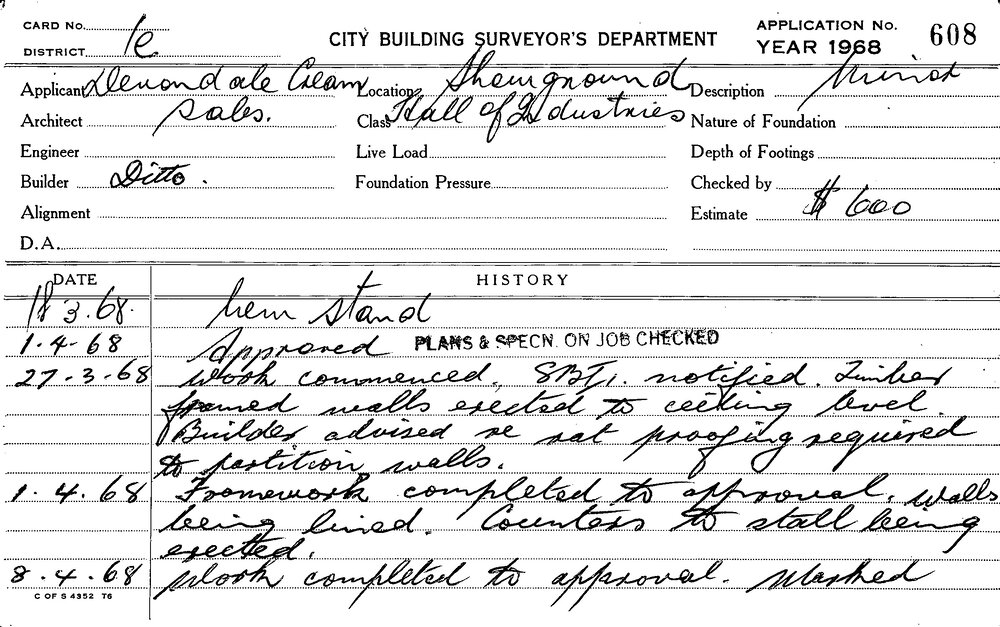 CARD No.
DISTRICT 1e
CITY BUILDING SURVEYOR'S DEPARTMENT
APPLICATION No. 608
YEAR 1968
Applicant Devondale Cream Location Showground Description Minor
Architect Sales. Class Hall of Industries Nature of Foundation
Engineer Live Load Depth of Footings
Builder Ditto. Foundation Pressure Checked by
Alignment Estimate $ 600
D.A.
DATE HISTORY
3.68. New Stand
1.4.68 Approved PLANS & SPECN. ON JOB CHECKED
27.3.68 Work commenced, notified. Timber
framed walls erected to ceiling level.
Builder advised re rat proofing required
to partition walls.
1.4.68 Framework completed to approval. Walls
being lined. Counters to stall being
erected.
8.4.68 Work completed to approval. Marked
C OF S 4352 T6